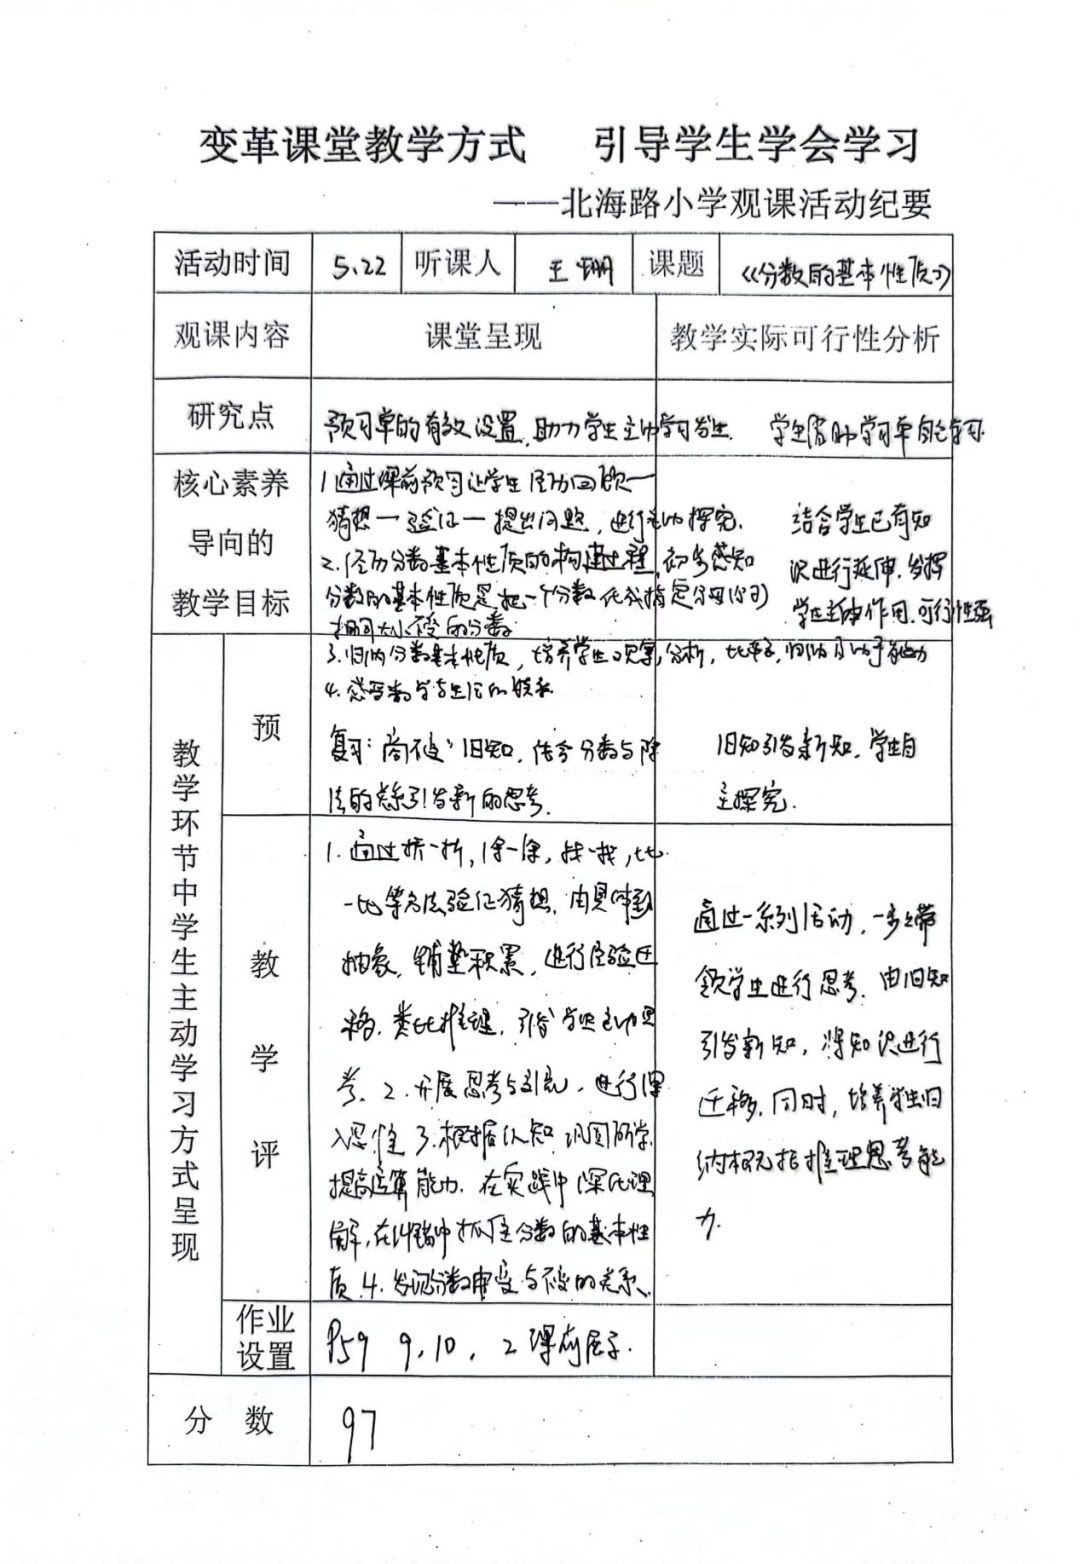 变革课堂教学方式 引导学生学会学习
——北海路小学观课活动纪要
活动时间 5.22 听课人 王珊 课题 《分数的基本性质》
观课内容 课堂呈现 教学实际可行性分析
研究点 预习单的有效设置,助力学生主动学习发生. 学生借助学习单自主学习.
核心素养
导向的
教学目标
1.通过课前预习让学生经历回顾一
猜想一验证一提出问题,进行主动探究.
2.经历分数基本性质的构建过程,初步感知
分数的基本性质是把一个分数化成指定分母(分子)
相同大小不变的分数
3.归纳分数基本性质,培养学生观察,分析,比较,归纳及动手能力
4.感受数学与生活的联系.
结合学生已有知
识进行延伸.发挥
学生主体作用.可行性强
教学环节中学生主动学习方式呈现
预
复习"商不变"旧知,结合分数与除
法的关系引发新的思考.
旧知引发新知.学生自
主探究.
教
学
评
1.通过折一折,涂一涂,找一找,比
一比等方法验证猜想,由具体到
抽象,铺垫积累,进行经验迁
移.类比推理,引发学生主动思
考.2.开展思考与引充,进行深
入思维 3.根据认知,巩固所学
提高运算能力.在实践中深化理
解,在纠错中抓住分数的基本性
质.4.发现分数中变与不变的关系.
通过一系列活动,一步步带
领学生进行思考.由旧知
引发新知,将知识进行
迁移.同时,培养学生归
纳概括推理思考能
力.
作业
设置
P59 9,10, 2课前展示.
分 数 97